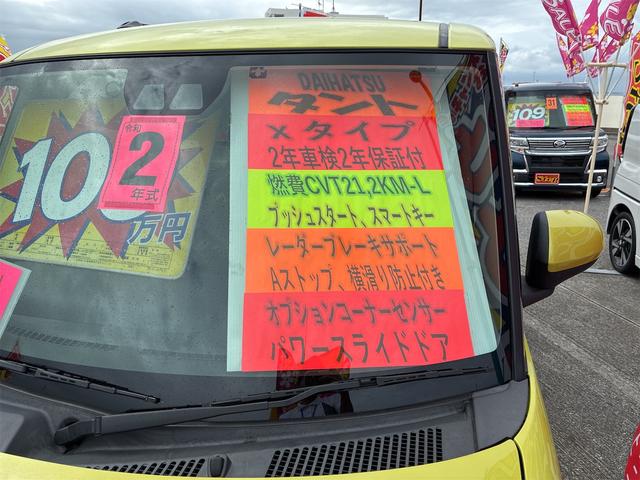 DAIHATSU
タント
Xタイプ
2年車検2年保証付
燃費CVT21,2KM-L
プッシュスタート、スマートキー
レーダーブレーキサポート
Aストップ、横滑り防止付き
オプションコーナーセンサー
パワースライドドア
令和
2
年式
10
万円
109